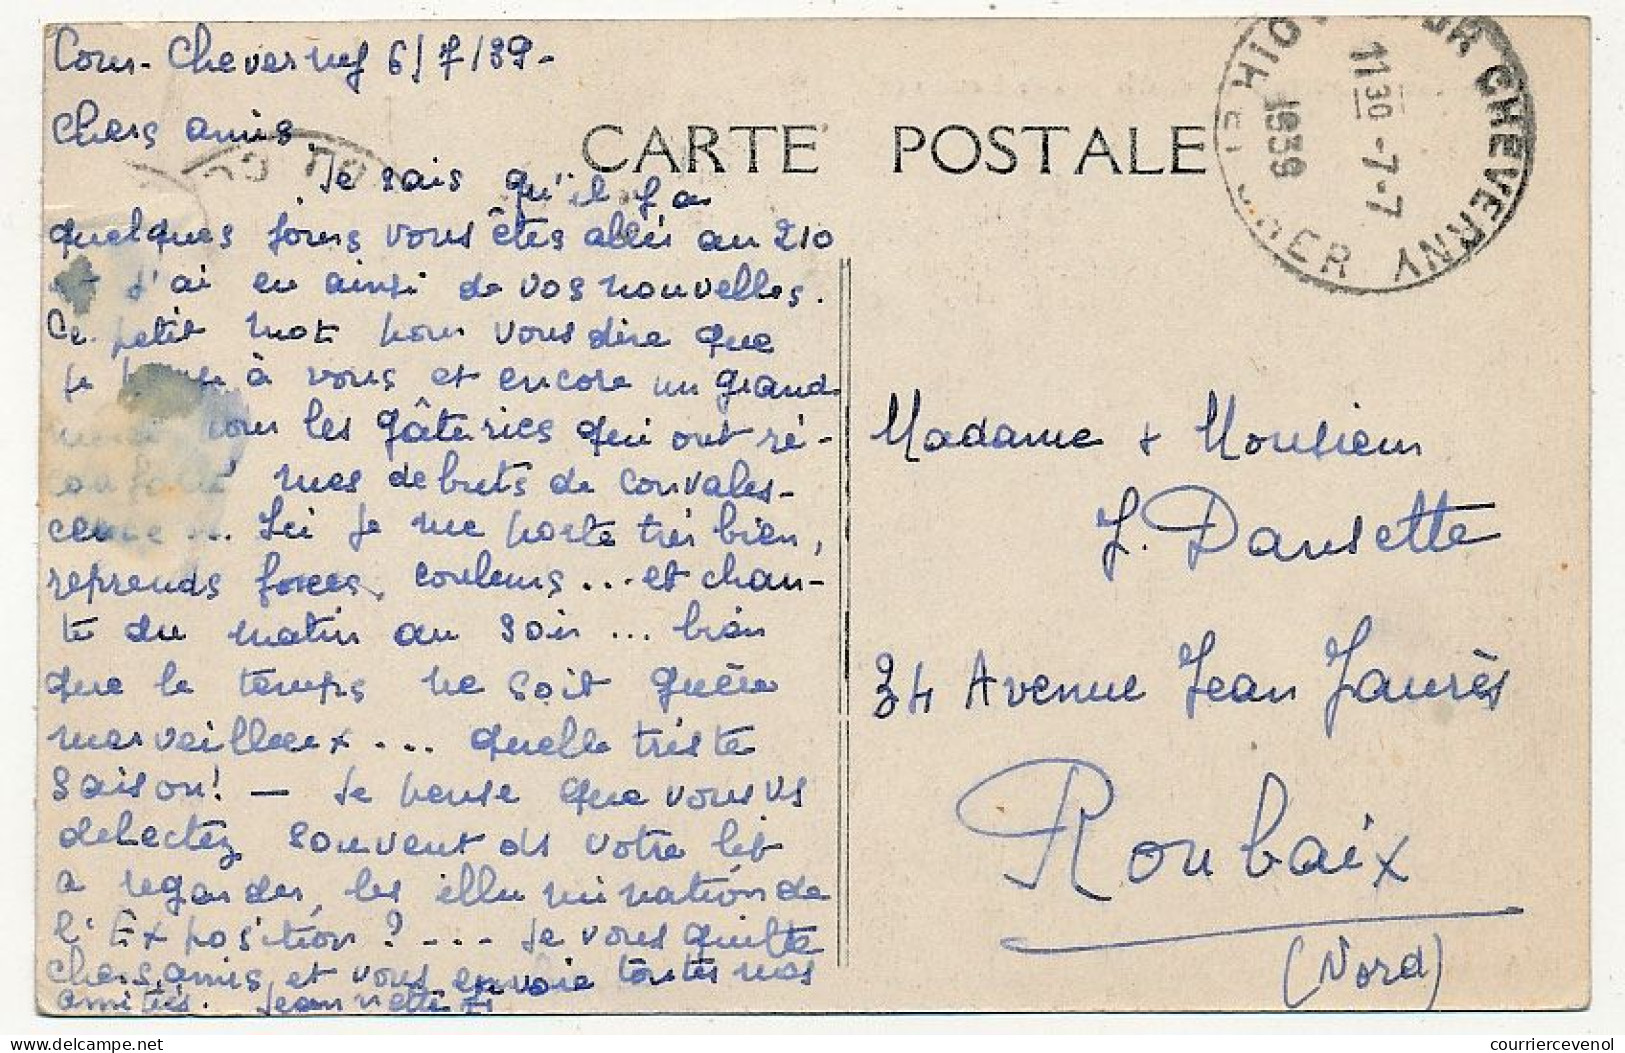 Cour-Cheverny 6/7/39-
Chers amis
CARTE POSTALE
Je sais qu'il y a
quelques jours vous êtes allés au 210
et j'ai eu ainsi de vos nouvelles.
Ce petit mot pour vous dire que
je pense à vous et encore un grand
merci pour les gâteries qui ont ré-
conforté mes debuts de convales-
cence... Ici je me porte très bien,
reprends forces, couleurs... et chan-
te du matin au soir... bien
que le temps ne soit guère
merveilleux.... quelle triste
saison! — Je pense que vous vs
delectez souvent ds votre lit
a regarder, les illumination de
l'Exposition ?.... Je vous quitte
chers amis et vous envoie toutes mes
amitiés. Jeannette
CHEVERNY
CHER
1130 -7-7
1939
Madame & Monsieur
J. Dansette
34 Avenue Jean Jaurès
Roubaix
(Nord)
courriercevenol
delcampe.net